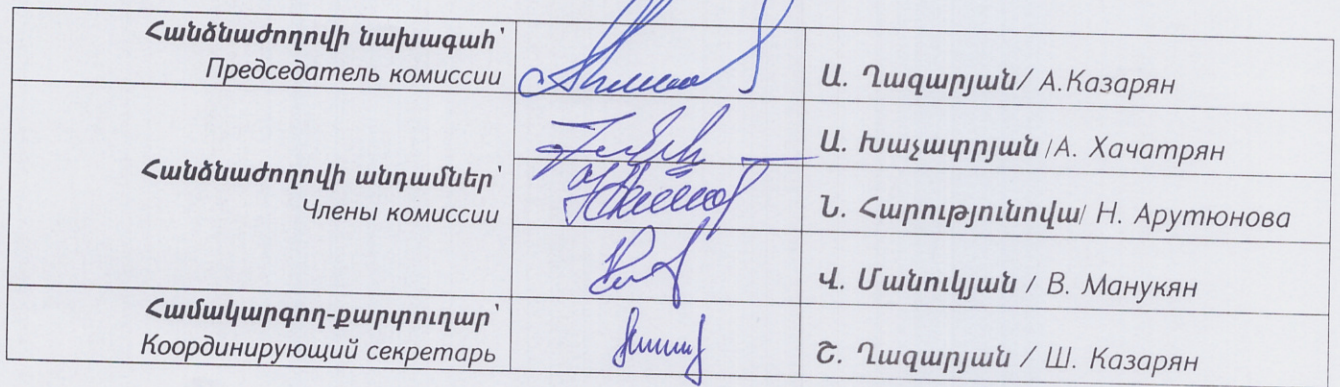 Հանձնաժողովի նախագահ՝
Председатель комиссии
Ա. Ղազարյան/ А.Казарян
Հանձնաժողովի անդամներ՝
Члены комиссии
Ա. Խաչատրյան /А. Хачатрян
Ն. Հարությունովա/ Н. Арутюнова
Վ. Մանուկյան / В. Манукян
Համակարգող-քարտուղար՝
Координирующий секретарь
Շ. Ղազարյան / Ш. Казарян